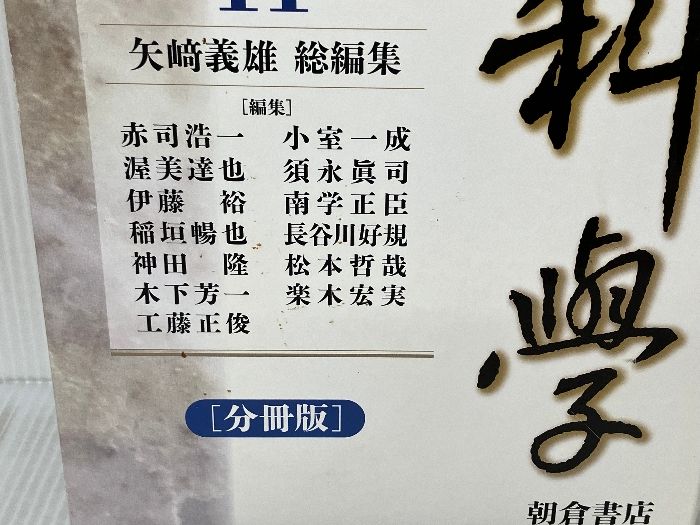 11
矢﨑義雄 総編集
[編集]
赤司浩一 小室一成
渥美達也 須永眞司
伊藤 裕 南学正臣
稲垣暢也 長谷川好規
神田 隆 松本哲哉
木下芳一 楽木宏実
工藤正俊
[分冊版]
科學
朝倉書店